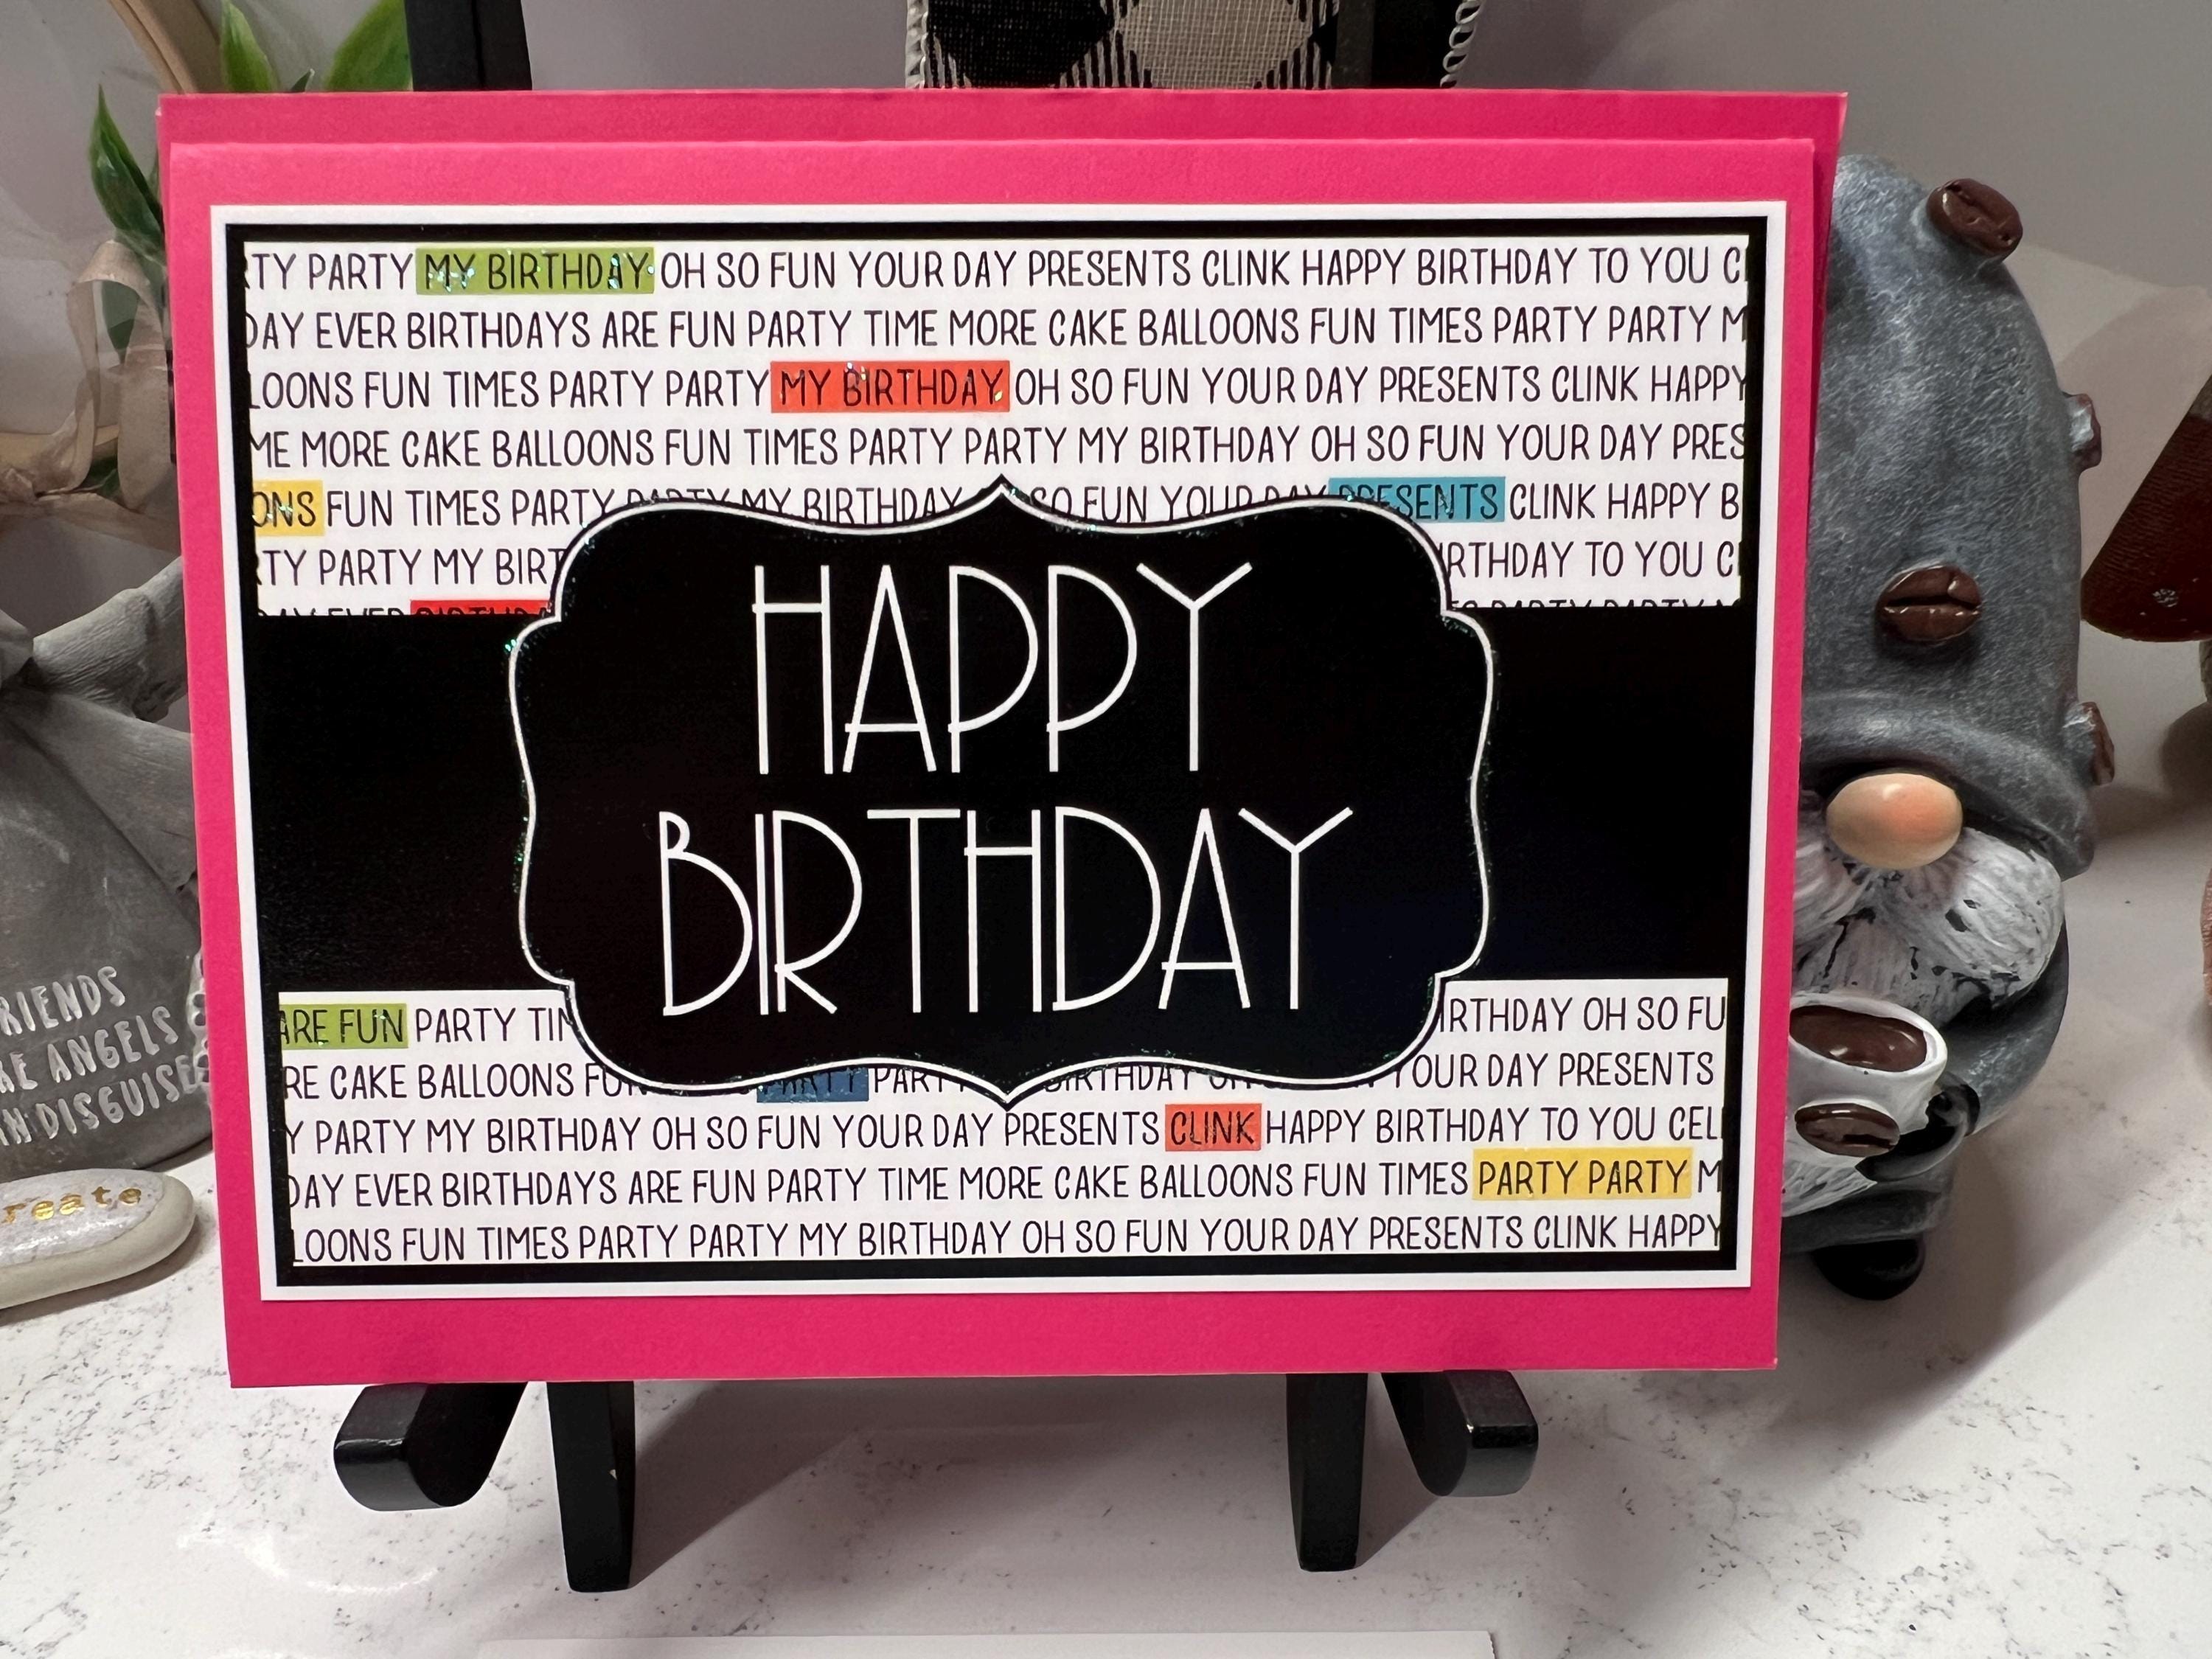 TY PARTY MY BIRTHDAY OH SO FUN YOUR DAY PRESENTS CLINK HAPPY BIRTHDAY TO YOU C
DAY EVER BIRTHDAYS ARE FUN PARTY TIME MORE CAKE BALLOONS FUN TIMES PARTY PARTY M
LOONS FUN TIMES PARTY PARTY MY BIRTHDAY OH SO FUN YOUR DAY PRESENTS CLINK HAPPY
ME MORE CAKE BALLOONS FUN TIMES PARTY PARTY MY BIRTHDAY OH SO FUN YOUR DAY PRES
ONS FUN TIMES PARTY PARTY MY BIRTHDAY SO FUN YOUR DAY PRESENTS CLINK HAPPY B
TY PARTY MY BIRT RTHDAY TO YOU C
DAY EVER BIRTHDA PARTY PARTY M
HAPPY
BIRTHDAY
ARE FUN PARTY TIM IRTHDAY OH SO FU
RE CAKE BALLOONS FUN PARTY PARTY BIRTHDAY YOUR DAY PRESENTS
Y PARTY MY BIRTHDAY OH SO FUN YOUR DAY PRESENTS CLINK HAPPY BIRTHDAY TO YOU CEL
DAY EVER BIRTHDAYS ARE FUN PARTY TIME MORE CAKE BALLOONS FUN TIMES PARTY PARTY M
LOONS FUN TIMES PARTY PARTY MY BIRTHDAY OH SO FUN YOUR DAY PRESENTS CLINK HAPPY
RIENDS
RE ANGELS
IN DISGUISE
reate